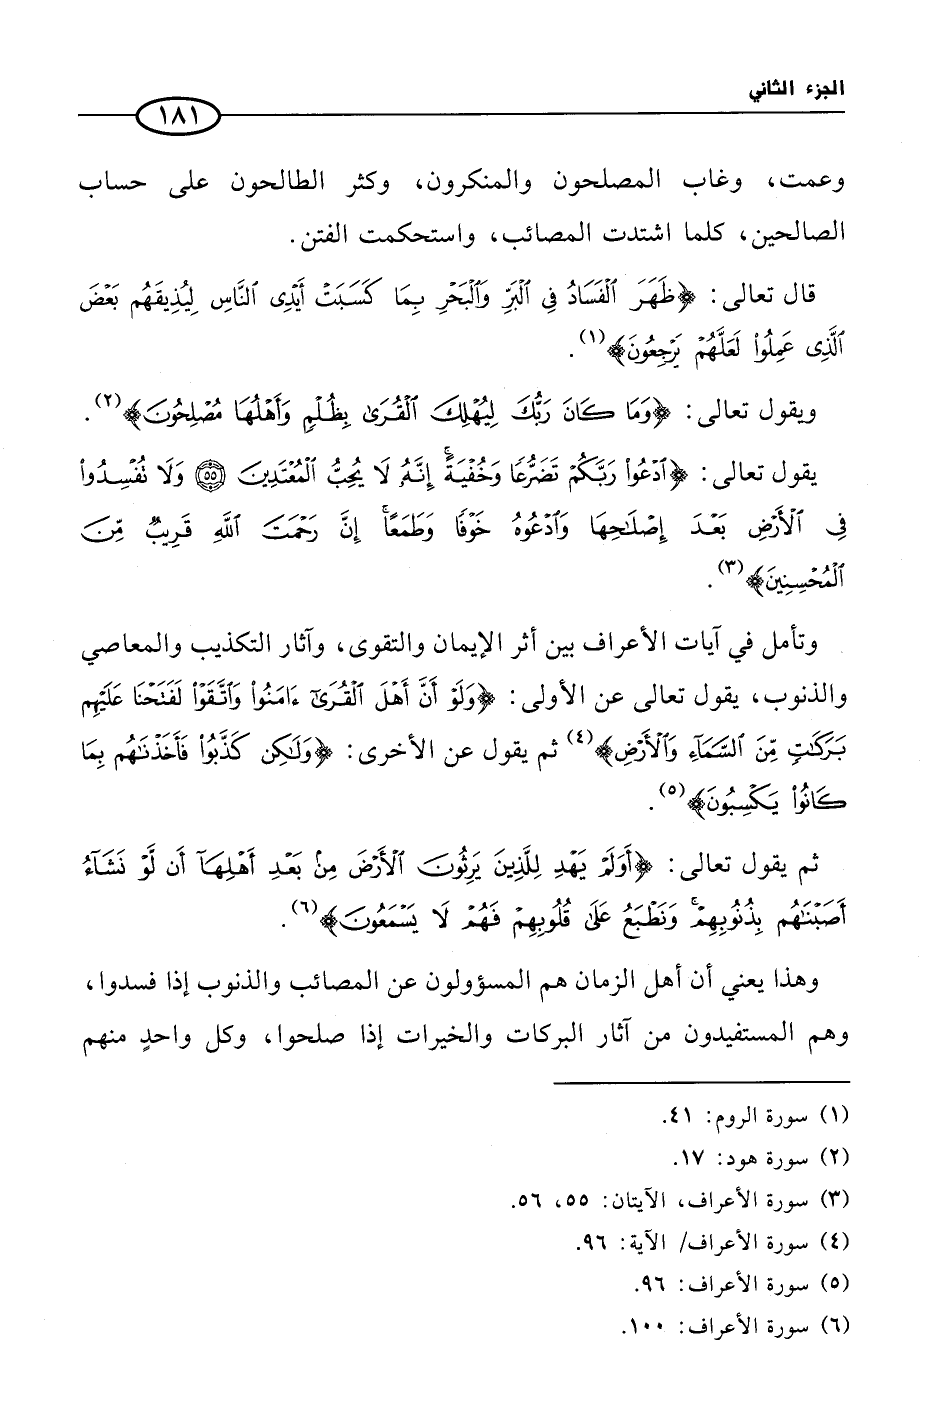 الجزء الثاني
١٨١
وعمت، وغاب المصلحون والمنكرون، وكثر الطالحون على حساب
الصالحين، كلما اشتدت المصائب، واستحكمت الفتن.
قال تعالى: ﴿ظَهَرَ ٱلْفَسَادُ فِى ٱلْبَرِّ وَٱلْبَحْرِ بِمَا كَسَبَتْ أَيْدِى ٱلنَّاسِ لِيُذِيقَهُم بَعْضَ
ٱلَّذِى عَمِلُوا۟ لَعَلَّهُمْ يَرْجِعُونَ﴾(١).
ويقول تعالى: ﴿وَمَا كَانَ رَبُّكَ لِيُهْلِكَ ٱلْقُرَىٰ بِظُلْمٍ وَأَهْلُهَا مُصْلِحُونَ﴾(٢).
يقول تعالى: ﴿ٱدْعُوا۟ رَبَّكُمْ تَضَرُّعًا وَخُفْيَةً ۚ إِنَّهُۥ لَا يُحِبُّ ٱلْمُعْتَدِينَ ٥٥ وَلَا تُفْسِدُوا۟
فِى ٱلْأَرْضِ بَعْدَ إِصْلَـٰحِهَا وَٱدْعُوهُ خَوْفًا وَطَمَعًا ۚ إِنَّ رَحْمَتَ ٱللَّهِ قَرِيبٌ مِّنَ
ٱلْمُحْسِنِينَ﴾(٣).
وتأمل في آيات الأعراف بين أثر الإيمان والتقوى، وآثار التكذيب والمعاصي
والذنوب، يقول تعالى عن الأولى: ﴿وَلَوْ أَنَّ أَهْلَ ٱلْقُرَىٰٓ ءَامَنُوا۟ وَٱتَّقَوْا۟ لَفَتَحْنَا عَلَيْهِم
بَرَكَـٰتٍ مِّنَ ٱلسَّمَآءِ وَٱلْأَرْضِ﴾(٤) ثم يقول عن الأخرى: ﴿وَلَـٰكِن كَذَّبُوا۟ فَأَخَذْنَـٰهُم بِمَا
كَانُوا۟ يَكْسِبُونَ﴾(٥).
ثم يقول تعالى: ﴿أَوَلَمْ يَهْدِ لِلَّذِينَ يَرِثُونَ ٱلْأَرْضَ مِنۢ بَعْدِ أَهْلِهَآ أَن لَّوْ نَشَآءُ
أَصَبْنَـٰهُم بِذُنُوبِهِمْ ۚ وَنَطْبَعُ عَلَىٰ قُلُوبِهِمْ فَهُمْ لَا يَسْمَعُونَ﴾(٦).
وهذا يعني أن أهل الزمان هم المسؤولون عن المصائب والذنوب إذا فسدوا،
وهم المستفيدون من آثار البركات والخيرات إذا صلحوا، وكل واحدٍ منهم
(١) سورة الروم: ٤١.
(٢) سورة هود: ١٧.
(٣) سورة الأعراف، الآيتان: ٥٥، ٥٦.
(٤) سورة الأعراف/ الآية: ٩٦.
(٥) سورة الأعراف: ٩٦.
(٦) سورة الأعراف: ١٠٠.